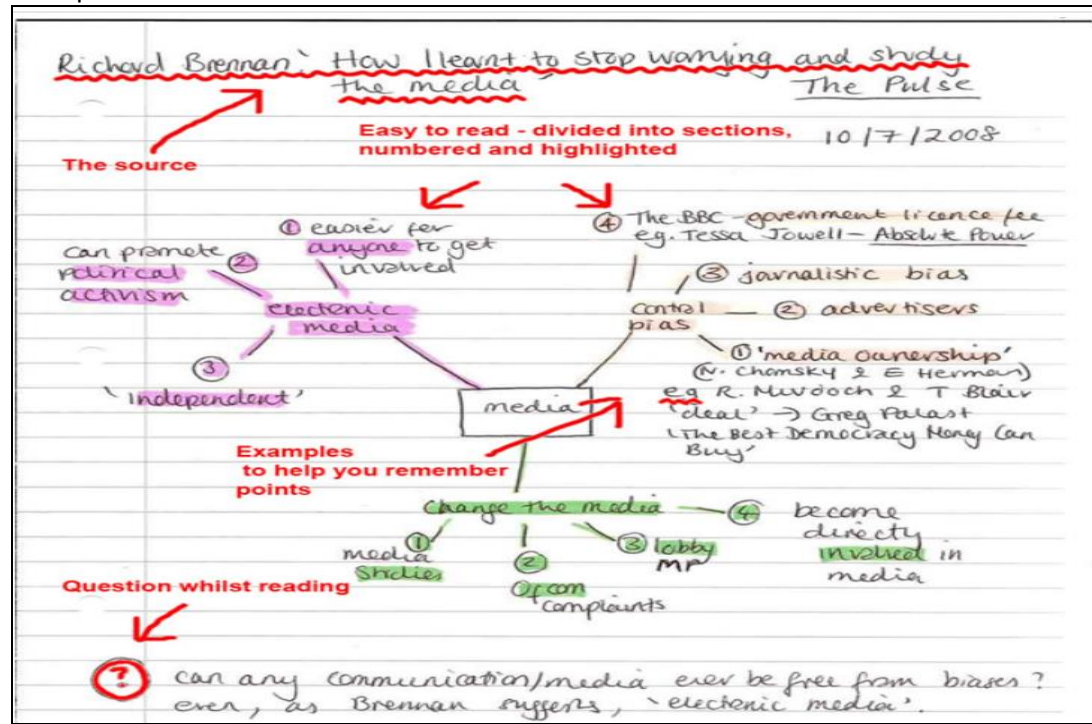 Richard Brennan: 'How I learnt to stop worrying and study
the media'
The Pulse
10/7/2008
The source
Easy to read - divided into sections,
numbered and highlighted
① easier for
anyone to get
involved
② can promote
political
activism
electonic
media
③
'independent'
④ The BBC - government licence fee
eg. Tessa Jowell - Absolute Power
③ jornalistic bias
control
bias
② advertisers
① 'media ownership'
(N. Chomsky & E Herman)
eg R. Murdoch & T Blair
'deal' → Greg Palast
'The Best Democracy Money Can
Buy'
media
Examples
to help you remember
points
Change the media
①
media
Studies
②
Ofcom
complaints
③ lobby
MP
④ become
directy
involved in
media
Question whilst reading
? can any communication/media ever be free from biases?
even, as Brennan suggests, 'electonic media'.